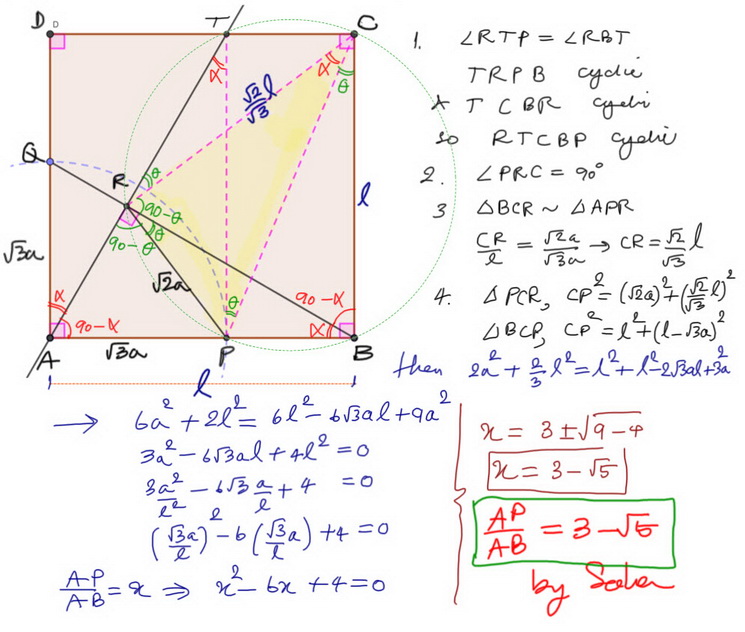 D D T C
α α θ
√2/√3 l
Q
R θ
90-θ
θ
90-θ
l
√3a
√2a
α θ 90-α
90-α α
A √3a P B
l
1. ∠RTP = ∠RBT
TRPB cyclic
∧ TCBR cyclic
so RTCBP cyclic
2. ∠PRC = 90°
3 △BCR ~ △APR
CR/l = √2a/√3a → CR = √2/√3 l
4. △PCR, CP² = (√2a)² + (√2/√3 l)²
△BCP, CP² = l² + (l-√3a)²
then 2a² + 2/3 l² = l² + l² - 2√3al + 3a²
→ 6a² + 2l² = 6l² - 6√3al + 9a²
3a² - 6√3al + 4l² = 0
3a²/l² - 6√3 a/l + 4 = 0
(√3a/l)² - 6(√3a/l) + 4 = 0
AP/AB = x ⇒ x² - 6x + 4 = 0
x = 3 ± √9-4
x = 3 - √5
AP/AB = 3 - √5
by